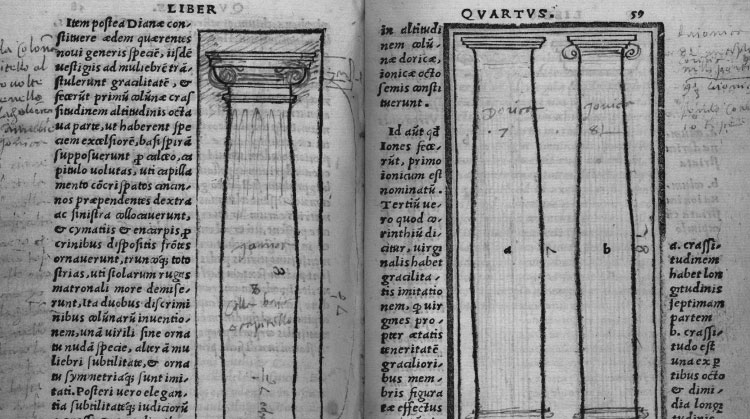 LIBER
Item postea Dianæ con-
stituere ædem quærentes
noui generis speciē, iisdē
uestigiis ad muliebrē trā-
stulerunt gracilitatē, &
fecerūt primū colūnæ cras
situdinem altitudinis octa
ua parte, ut haberent spe
ciem excelsiorē, basi spirā
supposuerunt ꝓ calceo, ca
pitulo uolutas, uti capilla
mento cōcrispatos cincin-
nos præpendentes dextra
ac sinistra collocauerunt,
& cymatiis & encarpis ꝓ
crinibus dispositis frōtes
ornauerunt, trunꝙ toto
strias, uti stolarum ruges
matronali more demise-
runt, Ita duobus discrimi
nibus colūnarū inuentio-
nem, unā uirili sine orna
tu nudā specie, alterā mu
liebri subtilitate, & orna
tu symmetriaꝙ sunt imi-
tati. Posteri uero elegan-
tia subtilitateꝙ iudiciorū
QVARTVS. 59
in altitudi
nem colū-
næ doricæ,
ionicæ octo
semis consti
tuerunt.
Id aūt qđ
Iones fece-
rūt, primo
ionicum est
nominatū.
Tertiū ue-
ro quod co-
rinthiū di-
citur, uirgi
nalis habet
gracilita-
tis imitatio
nem. ꝗ uir
gines pro-
pter ætatis
teneritatē
graciliori-
bus mem-
bris figura
tæ effectus
Dorica
7
Ionica
8½
a
7
b
8½
a. crassi-
tudinem
habet lon
gitudinis
septimam
partem
b. crassi-
tudo est
una ex ꝑ
tibus octo
& dimi-
dia longi
tudinis